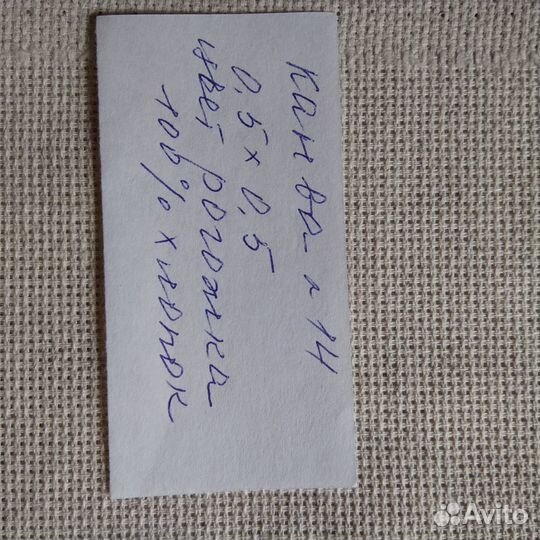 Канва л 14
0,5 х 0,5
цвет рогожка
100% хлопок
Avito